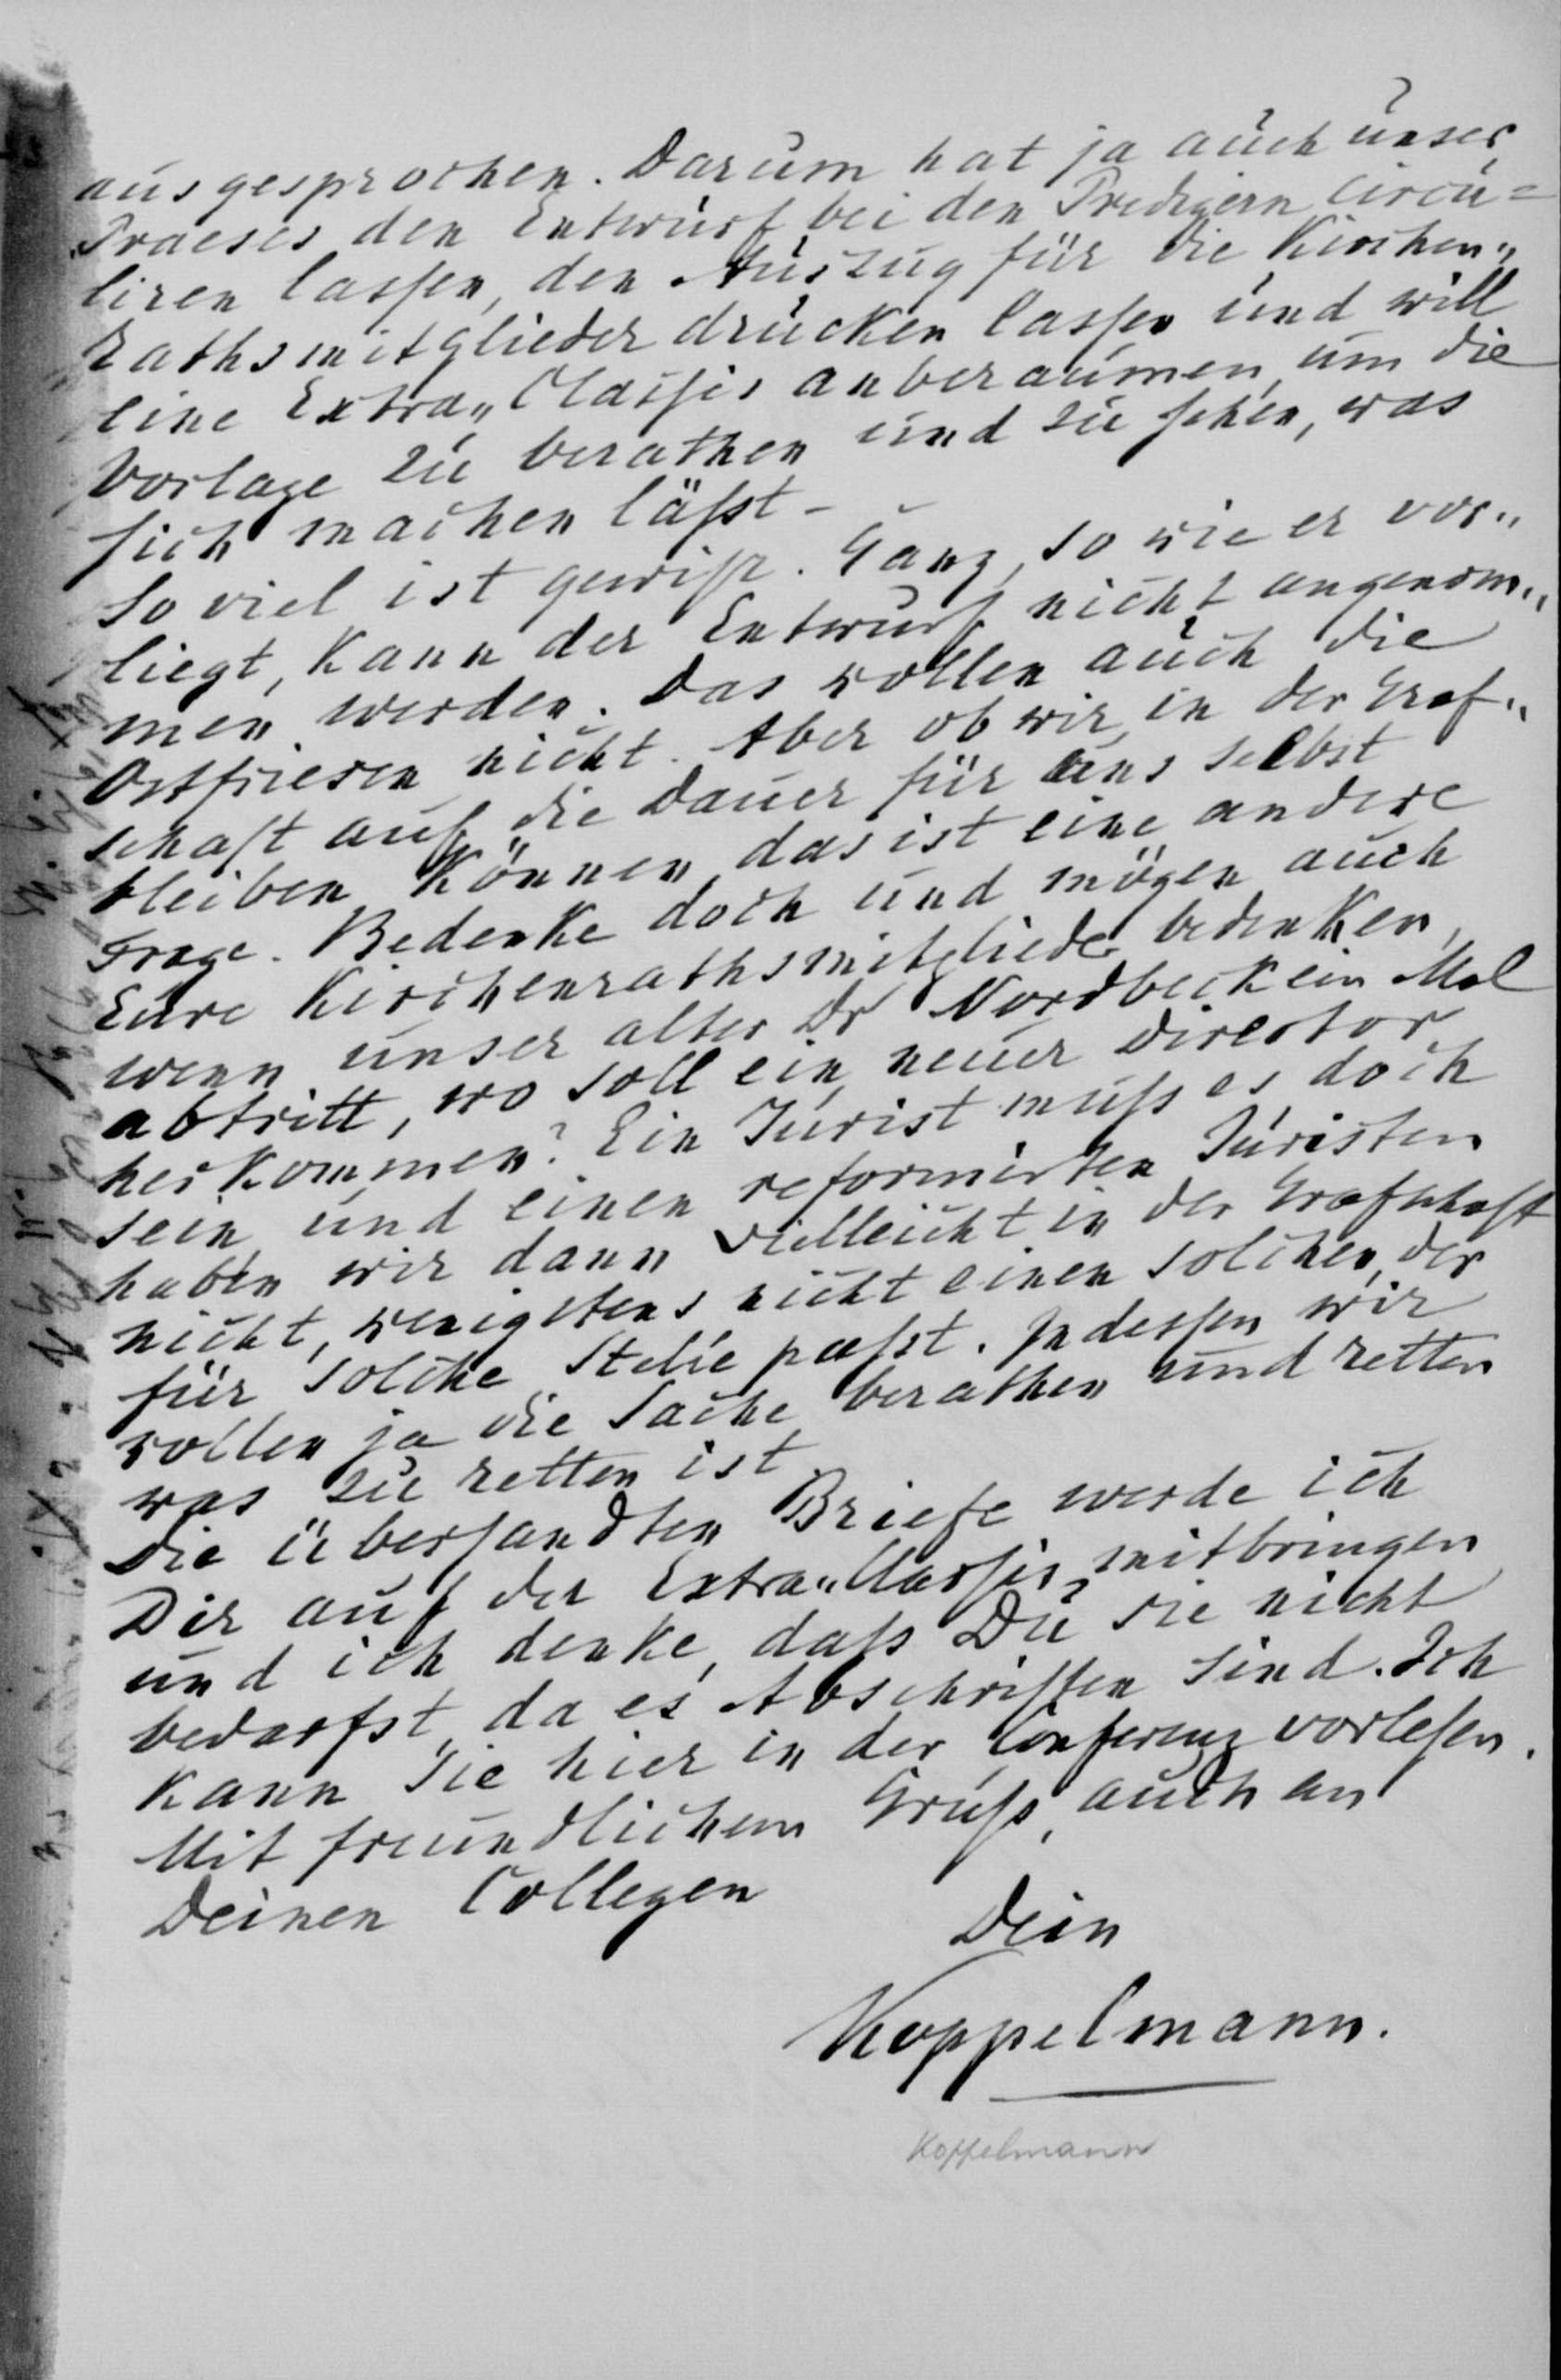 ausgesprochen. Darum hat ja auch unser
Praeses den Entwurf bei den Predigern circu=
liren lassen, den Auszug für die Kirchen„
rathsmitglieder drucken lassen und will
eine Extra„Classis anberaumen, um die
Vorlage zu berathen und zu sehen, was
sich machen läßt -
So viel ist gewiß. Ganz, so wie er vor„
liegt, kann der Entwurf nicht angenom„
men werden. Das wollen auch die
Ostfriesen nicht. Aber ob wir in der Graf„
schaft auf die Dauer für uns selbst
bleiben können, das ist eine andere
Frage. Bedenke doch und mögen auch
Eure Kirchenrathsmitglieder bedenken,
wenn unser alter Dr Nordbeck ein Mal
abtritt, wo soll ein neuer Director
herkommen? Ein Jurist muß es doch
sein und einen reformirten Juristen
haben wir dann vielleicht in der Grafschaft
nicht, wenigstens nicht einen solchen, der
für solche Stelle paßt. Indessen wir
wollen ja die Sache berathen und retten
was zu retten ist.
Die übersandten Briefe werde ich
Dir auf der Extra„Classis mitbringen
und ich denke, daß Du sie nicht
bedarfst, da es Abschriften sind. Ich
kann sie hier in der Conferenz vorlesen.
Mit freundlichem Gruß, auch an
Deinen Collegen
Dein
Koppelmann.
Koppelmann